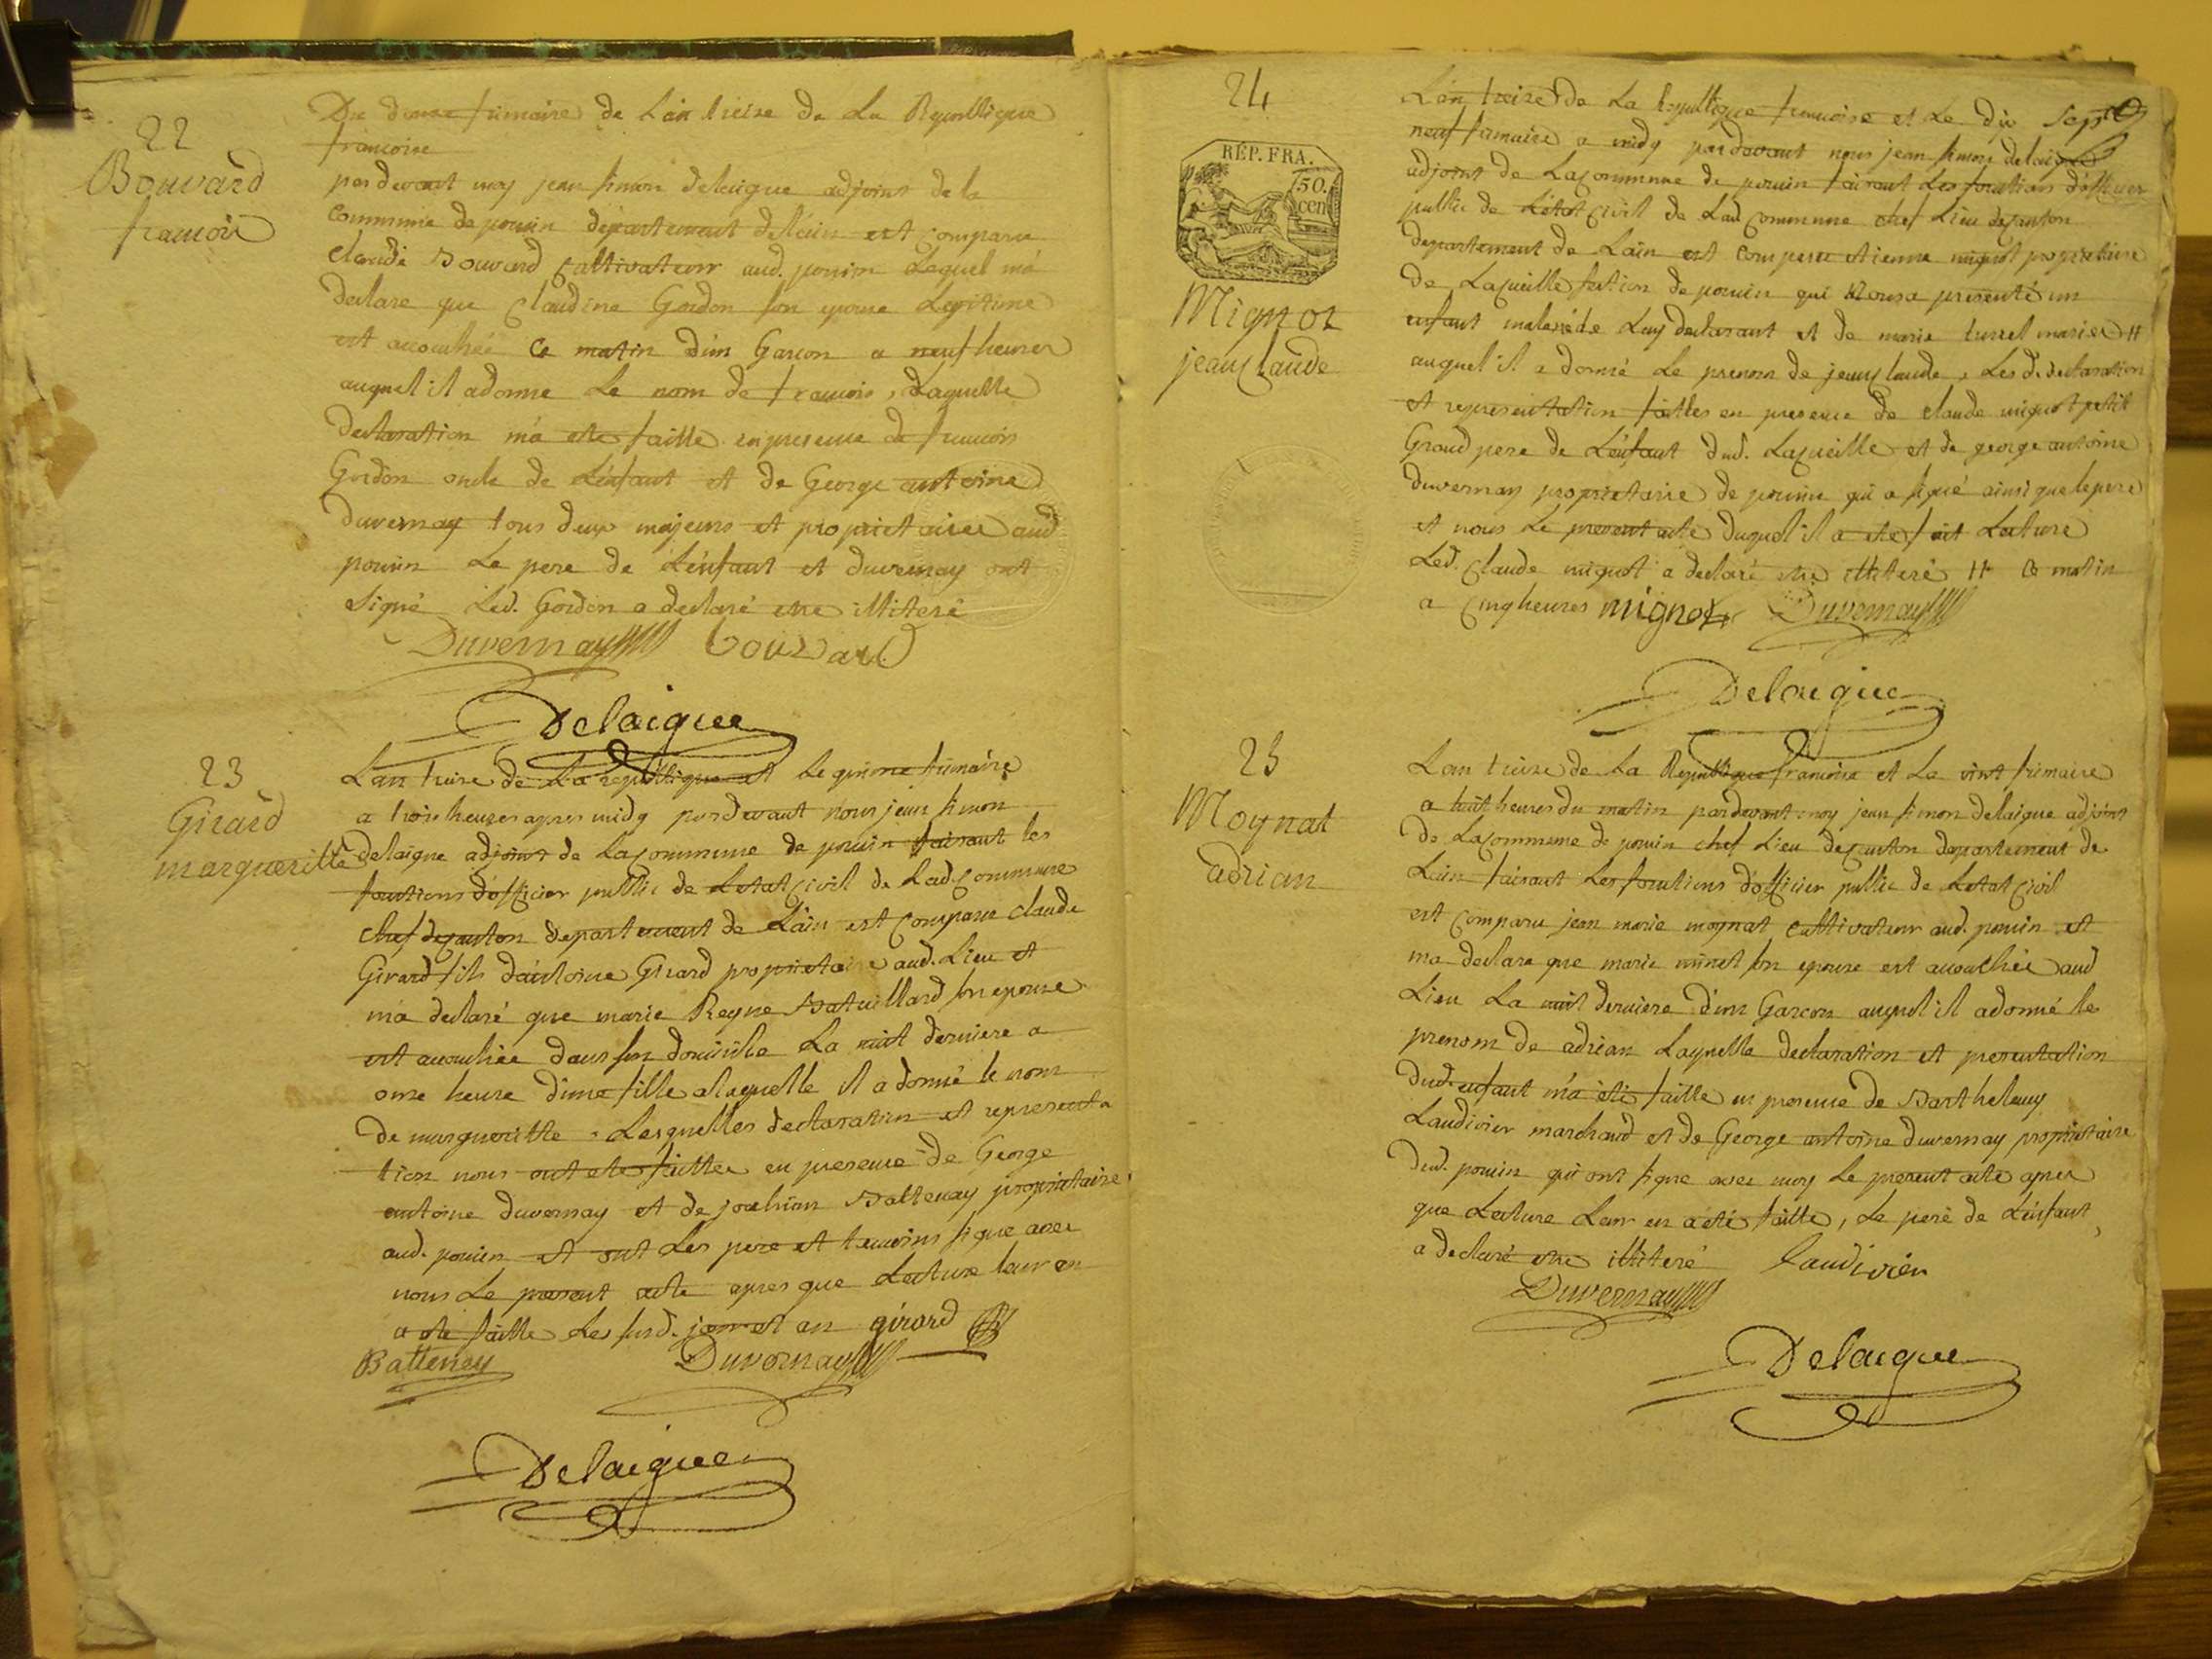 22
Bouvard
francois
Du douze frimaire de Lan treize de La Republique
francoise
par devant moy jean simon delaigue adjoint de la
Commune de poncin departement de l'ain est comparu
Claude Bouvard Cultivateur aud. poncin Lequel m'a
declare que Claudine Gordon son epouse Legitime
est accouchée Ce matin d'un Garcon a neuf heures
auquel il a donne Le nom de francois, Laquelle
declaration m'a ete faitte en presence de francois
Gordon oncle de L'enfant et de George antoine
Duvernay tous deux majeurs et proprietaires aud
poncin Le pere de L'enfant et duvernay ont
signé Led. Gordon a declaré etre illiteré
Duvernay bouvard
Delaigue
23
Girard
margueritte
Lan treize de La republique et Le quinze frimaire
a trois heures apres midy par devant nous jean simon
delaigue adjoint de La commune de poncin faisant les
fonctions d'officier public de Letat Civil de Lad. Commune
chef de canton departement de L'ain est comparu claude
Girard fils d'antoine Girard proprietaire aud. Lieu et
m'a declaré que marie Reyne Bataillard son epouse
est accouchée dans son domicile La nuit derniere a
onze heure d'une fille a laquelle il a donné le nom
de margueritte, Lesquelles declaration et representa
tion nous ont ete faittes en presence de George
antoine duvernay et de joachim Battenay proprietaires
aud. poncin et ont Les pere et temoins signe avec
nous Le present acte apres que Lecture leur en
a ete faitte Les susd. jour et an girard
Batteney Duvernay
Delaigue
24
RÉP. FRA.
50.
cen
Mignot
jean Claude
Lan treize de La Republique francoise et Le dix Sept
neuf frimaire a midy par devant nous jean simon delaigue
adjoint de La commune de poncin faisant Les fonctions d'officier
public de L'etat Civil de Lad Commune chef Lieu de canton
departement de Lain est comparu etienne mignot proprietaire
de Lacueille section de poncin qui Nous a presenté un
enfant male né de Luy declarant et de marie turrel mariés #
auquel il a donné Le prenom de jean claude, Les d. declaration
et representation faittes en presence de claude mignot petit
Grand pere de L'enfant dud. Lacueille et de george antoine
duvernay proprietaire de poncin qui a signé ainsi que le pere
et nous Le present acte duquel il a ete fait Lecture
Led. Claude mignot a declaré etre illiteré # Ce matin
a cinq heures mignot Duvernay
Delaigue
25
Moynat
adrian
Lan treize de La Republique francoise et Le vint frimaire
a huit heures du matin par devant moy jean simon delaigue adjoint
de La commune de poncin chef Lieu de canton departement de
Lain faisant Les fonctions d'officier public de Letat Civil
est comparu jean marie moynat cultivateur aud. poncin et
m'a declare que marie minet son epouse est accouchée aud
Lieu La nuit derniere d'un Garcon auquel il a donné le
prenom de adrian Laquelle declaration et presentation
dud. enfant m'a été faitte en presence de Barthelemy
Laudivier marchand et de George antoine duvernay proprietaire
dud. poncin qui ont signé avec moy Le present acte apres
que Lecture Leur en a été faitte, Le pere de L'enfant
a declaré etre illiteré laudivier
Duvernay
Delaigue